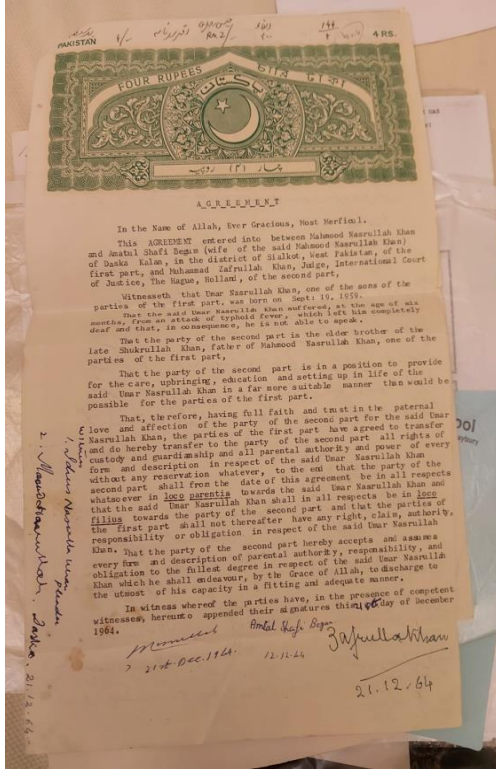 PAKISTAN
4 RS.
FOUR RUPEES
پاکستان
چار روپیہ
AGREEMENT
In the Name of Allah, Ever Gracious, Most Merficul.
This AGREEMENT entered into between Mahmood Nasrullah Khan
and Amatul Shafi Begum (wife of the said Mahmood Nasrullah Khan)
of Daska Kalan, in the district of Sialkot, West Pakistan, of the
first part, and Muhammad Zafrullah Khan, Judge, International Court
of Justice, The Hague, Holland, of the second part,
Witnesseth that Umar Nasrullah Khan, one of the sons of the
parties of the first part, was born on Sept: 19, 1959.
That the said Umar Nasrullah Khan suffered, at the age of six
months, from an attack of typhoid fever, which left him completely
deaf and that, in consequence, he is not able to speak.
That the party of the second part is the older brother of the
late Shukrullah Khan, father of Mahmood Nasrullah Khan, one of the
parties of the first part,
That the party of the second part is in a position to provide
for the care, upbringing, education and setting up in life of the
said Umar Nasrullah Khan in a far more suitable manner than would be
possible for the parties of the first part.
That, therefore, having full faith and trust in the paternal
love and affection of the party of the second part for the said Umar
Nasrullah Khan, the parties of the first part have agreed to transfer
and do hereby transfer to the party of the second part all rights of
custody and guardianship and all parental authority and power of every
form and description in respect of the said Umar Nasrullah Khan
without any reservation whatever, to the end that the party of the
second part shall from the date of this agreement be in all respects
whatsoever in loco parentis towards the said Umar Nasrullah Khan and
that the said Umar Nasrullah Khan shall in all respects be in loco
filius towards the party of the second part and that the parties of
the first part shall not thereafter have any right, claim, authority,
responsibility or obligation in respect of the said Umar Nasrullah
Khan.
That the party of the second part hereby accepts and assumes
every form and description of parental authority, responsibility, and
obligation to the fullest degree in respect of the said Umar Nasrullah
Khan which he shall endeavour, by the Grace of Allah, to discharge to
the utmost of his capacity in a fitting and adequate manner.
In witness whereof the parties have, in the presence of competent
witnesses, hereunto appended their signatures this day of December
1964.
21st Dec. 1964
Amtal Shafi Begum
12-12-64
Zafrullakhan
21.12.64
Witness
1. Idris Nasrullah Khan
2. Daska. 21.12.64.